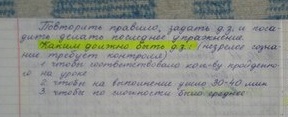 Повторить правило, задать д.з. и поса-
дить делать письменное упражнение.
Каким должно быть д.з.: (незрелое созна-
ние требует контроля)
1. чтобы соответствовало кол-ву пройденно-
го на уроке
2. чтобы на выполнение ушло 30-40 мин
3. чтобы по сложности было среднее